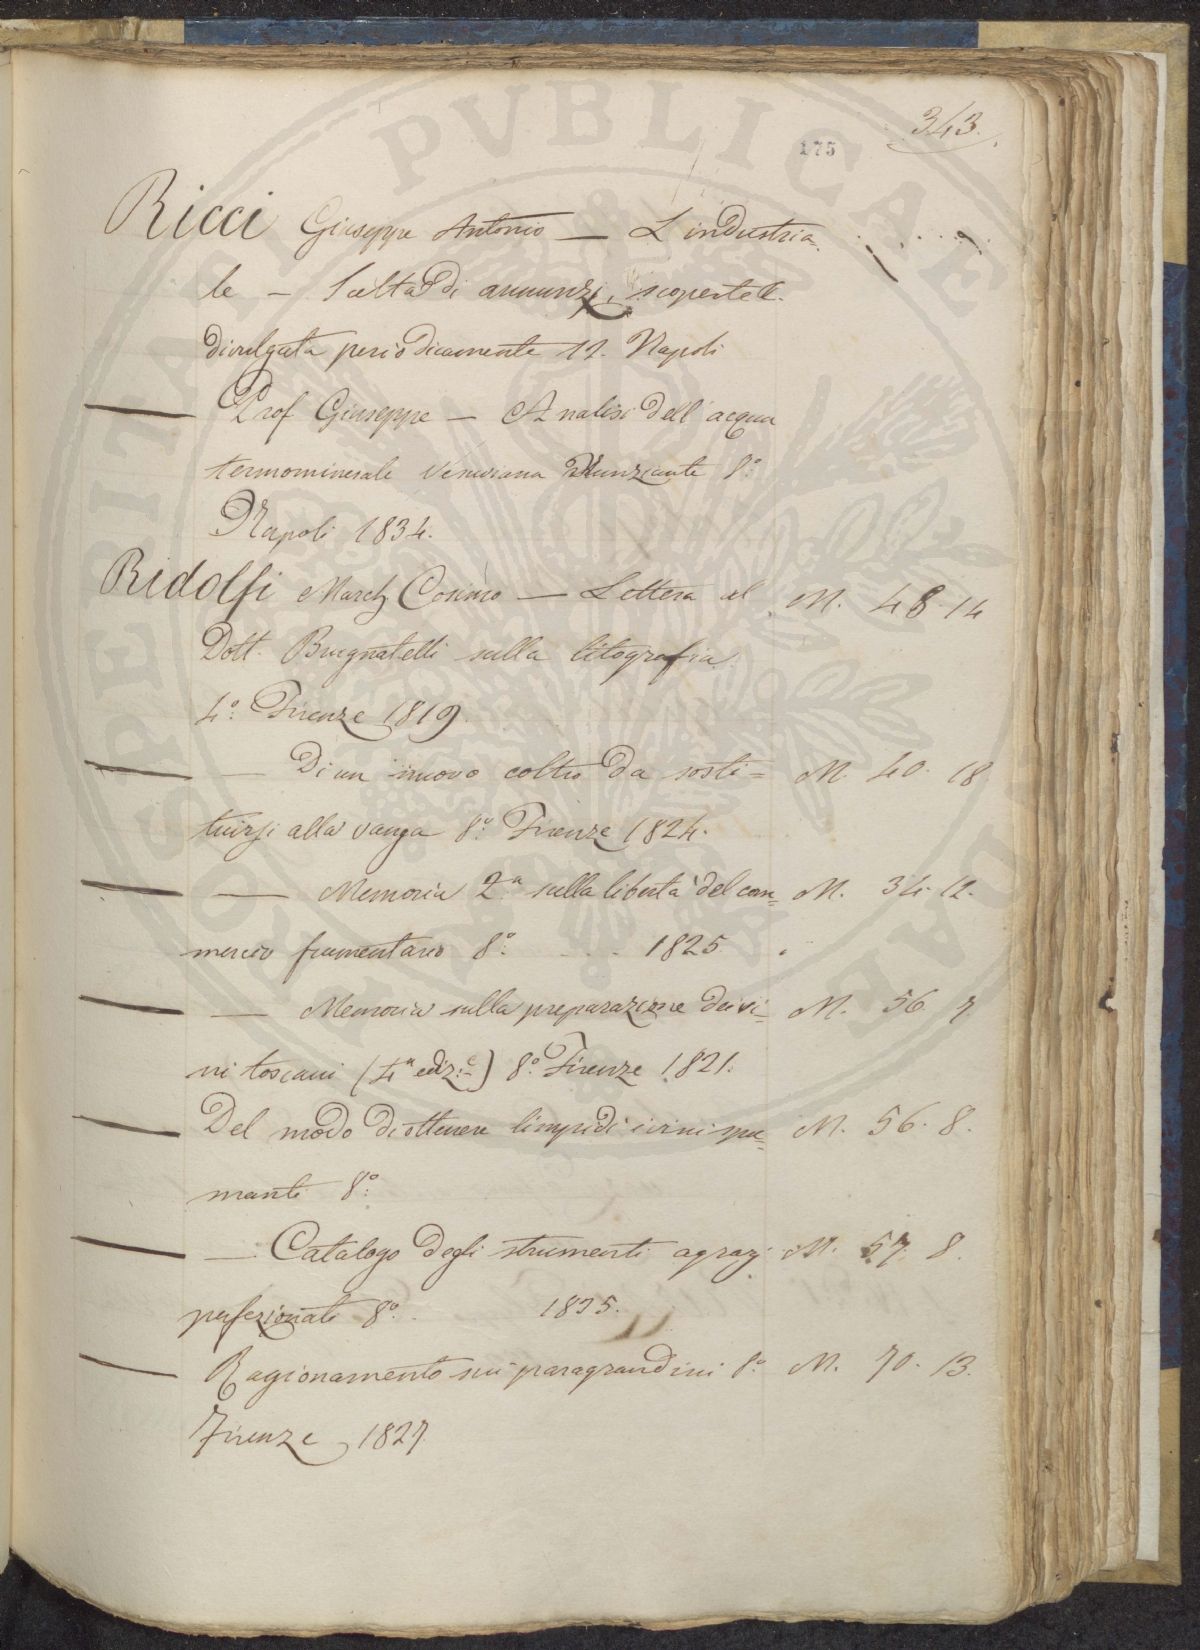 343.
175
Ricci Giuseppe Antonio — L'industria=
le — Scelta di annunzi, scoperte &.
divulgata periodicamente 12. Napoli
Prof Giuseppe — Analisi dell' acqua
termominerale Vesuviana Nunziante 8º
Napoli 1834.
Ridolfi March Cosimo — Lettera al M. 48. 14
Dott. Brugnatelli sulla litografia
4º. Firenze 1819.
— Di un nuovo coltro da sosti= M. 40. 18
tuirsi alla vanga 8º. Firenze 1824.
— Memoria 2ª sulla libertà del com= M. 34. 12.
mercio frumentario 8º. 1825.
— Memoria sulla preparazione dei vi= M. 56. 7.
ni toscani (4ª ediz.e) 8º. Firenze 1821.
Del modo di ottenere limpidi i vini spu= M. 56. 8.
manti 8º.
— Catalogo degli strumenti agrarj M. 57. 8.
perfezionati 8º. 1835.
Ragionamento sui paragrandini 8º M. 70. 13.
Firenze 1827.
PVBLICAE